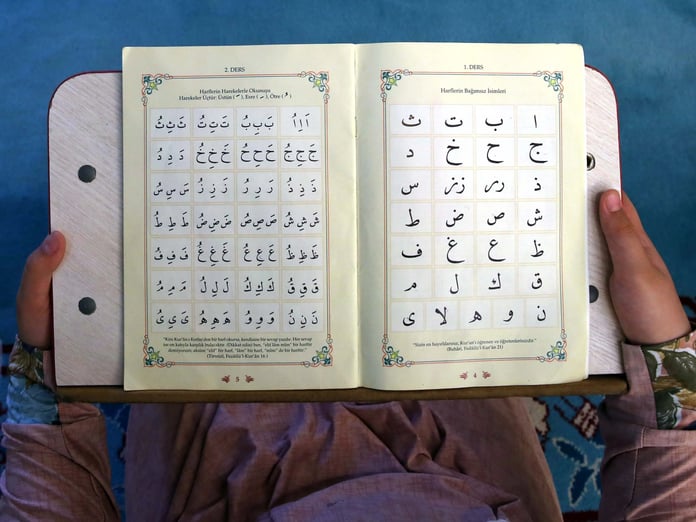 1. DERS
Harflerin Bağımsız İsimleri
ا ب ت ث
ج ح خ د
ذ رر زز س
ش ص ض ط
ظ ع غ ف
ق ك ل م
ن و ه لا ى
"Sizin en hayırlılarınız, Kur'an'ı öğrenen ve öğretenlerinizdir."
(Buhârî, Fedâilü'l-Kur'ân 21)
4
2. DERS
Harflerin Harekelerle Okunuşu
Harekeler Üçtür: Üstün ( َ ), Esre ( ِ ), Ötre ( ُ )
اَ اِ اُ بَ بِ بُ تَ تِ تُ ثَ ثِ ثُ
جَ جِ جُ حَ حِ حُ خَ خِ خُ دَ دِ دُ
ذَ ذِ ذُ رَ رِ رُ زَ زِ زُ سَ سِ سُ
شَ شِ شُ صَ صِ صُ ضَ ضِ ضُ طَ طِ طُ
ظَ ظِ ظُ عَ عِ عُ غَ غِ غُ فَ فِ فُ
قَ قِ قُ كَ كِ كُ لَ لِ لُ مَ مِ مُ
نَ نِ نُ وَ وِ وُ هَ هِ هُ ىَ ىِ ىُ
"Kim Kur'ân-ı Kerîm'den bir harf okursa, kendisine bir sevap yazılır. Her sevap
ise on katıyla karşılık bulacaktır. (Dikkat edin) ben, "elif lâm mîm" bir harftir
demiyorum, aksine "elif" bir harf, "lâm" bir harf, "mîm" de bir harftir."
(Tirmizî, Fedâilü'l-Kur'ân 16)
5